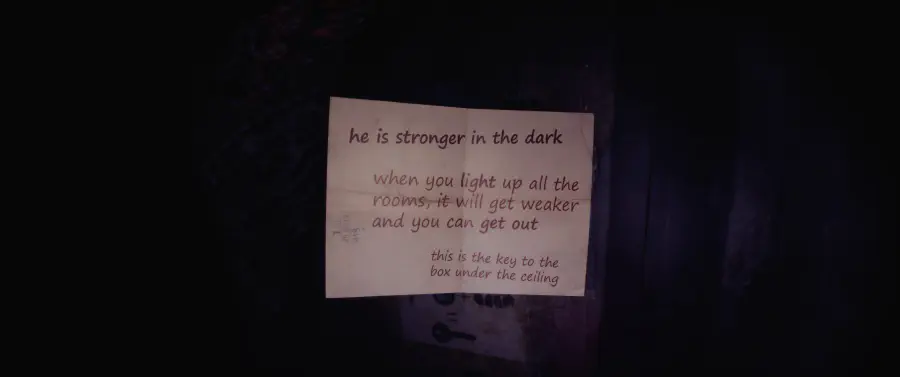 he is stronger in the dark
when you light up all the
rooms, it will get weaker
and you can get out
this is the key to the
box under the ceiling